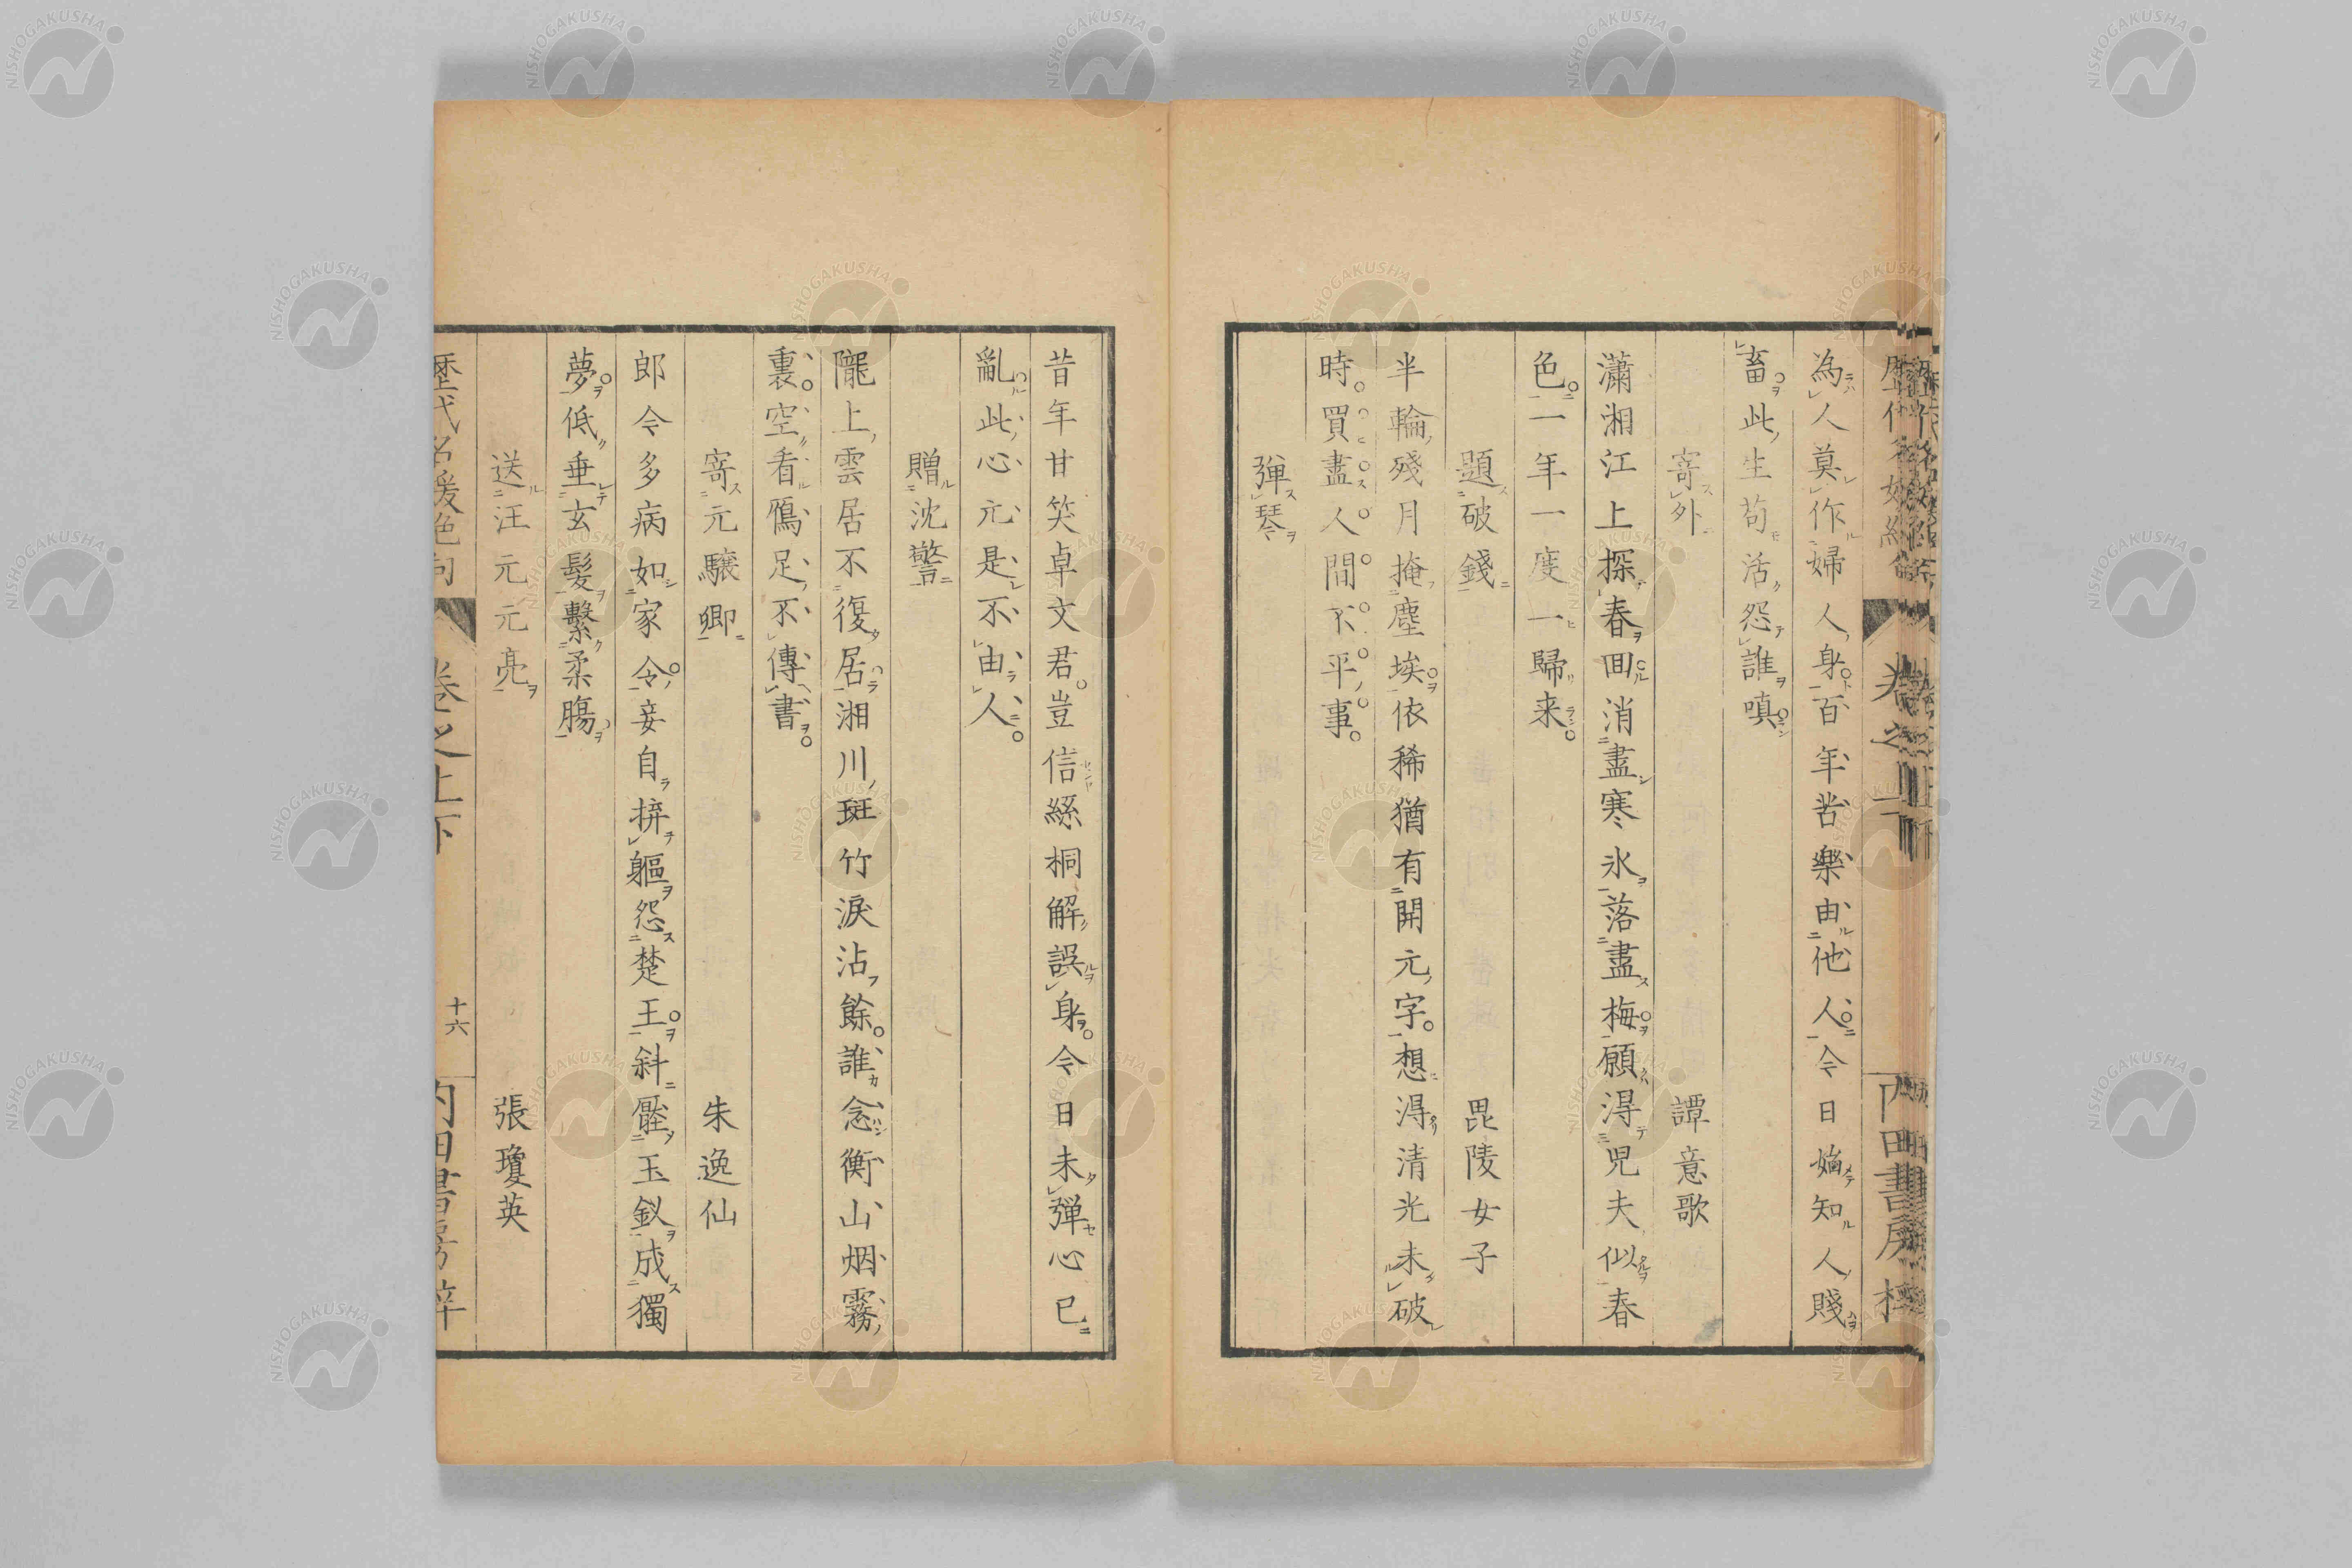 為人莫作婦人身百年苦樂由他人今日始知人賤
畜此生苟活怨誰嗔
寄外 譚意歌
瀟湘江上探春回消盡寒氷落盡梅願得兒夫似春
色一年一度一歸来
題破錢 毘陵女子
半輪殘月掩塵埃依稀猶有開元字想得清光未破
時買盡人間不平事
彈琴
昔年甘笑卓文君豈信絲桐解誤身今日未彈心已
亂此心元是不由人
贈沈警
隴上雲居不復居湘川斑竹淚沾餘誰念衡山烟霧
裏空看鴈足不傳書
寄元驤卿 朱逸仙
郎今多病如家令妾自拚軀怨楚王斜玉釵成獨
夢低垂玄髪繫柔膓
送汪元元亮 張瓊英
歷代名媛絶句 卷之上下 十六 内田書房梓